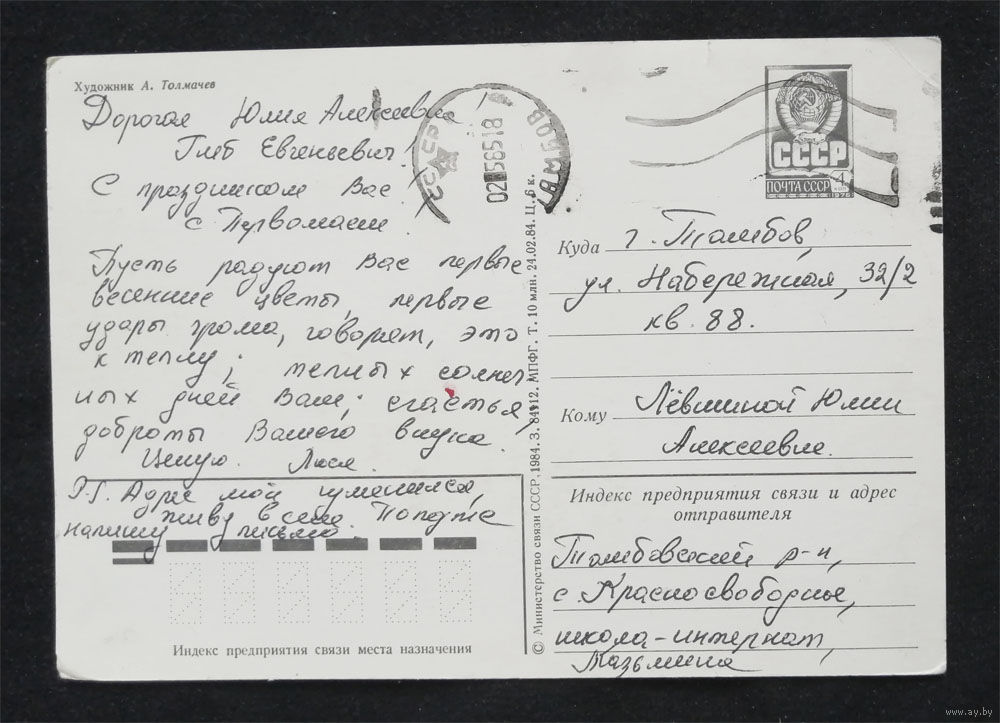 Художник А. Толмачев
Дорогая Юлия Алексеевна
Глеб Евгеньевич!
С праздником Вас
с Первомаем.
Пусть радуют Вас первые
весенние цветы, первые
удары грома, говорят, это
к теплу; теплых солнеч
ных дней Вам; счастья,
доброты Вашего внука.
Целую. Люся.
P.S. Адрес мой изменился,
живу в селе. Попозже
напишу письмо.
Индекс предприятия связи места назначения
© Министерство связи СССР. 1984. З. 84112. МПФГ. Т. 10 млн. 24.02.84. Ц. 6 к.
СССР
ТАМБОВ
СССР
ПОЧТА СССР 4
1976
Куда г. Тамбов,
ул. Набережная, 32/2
кв. 88.
Кому Лёвшиной Юлии
Алексеевне.
Индекс предприятия связи и адрес
отправителя
Тамбовский р-н,
с. Красносвободное,
школа-интернат,
www.ay.by